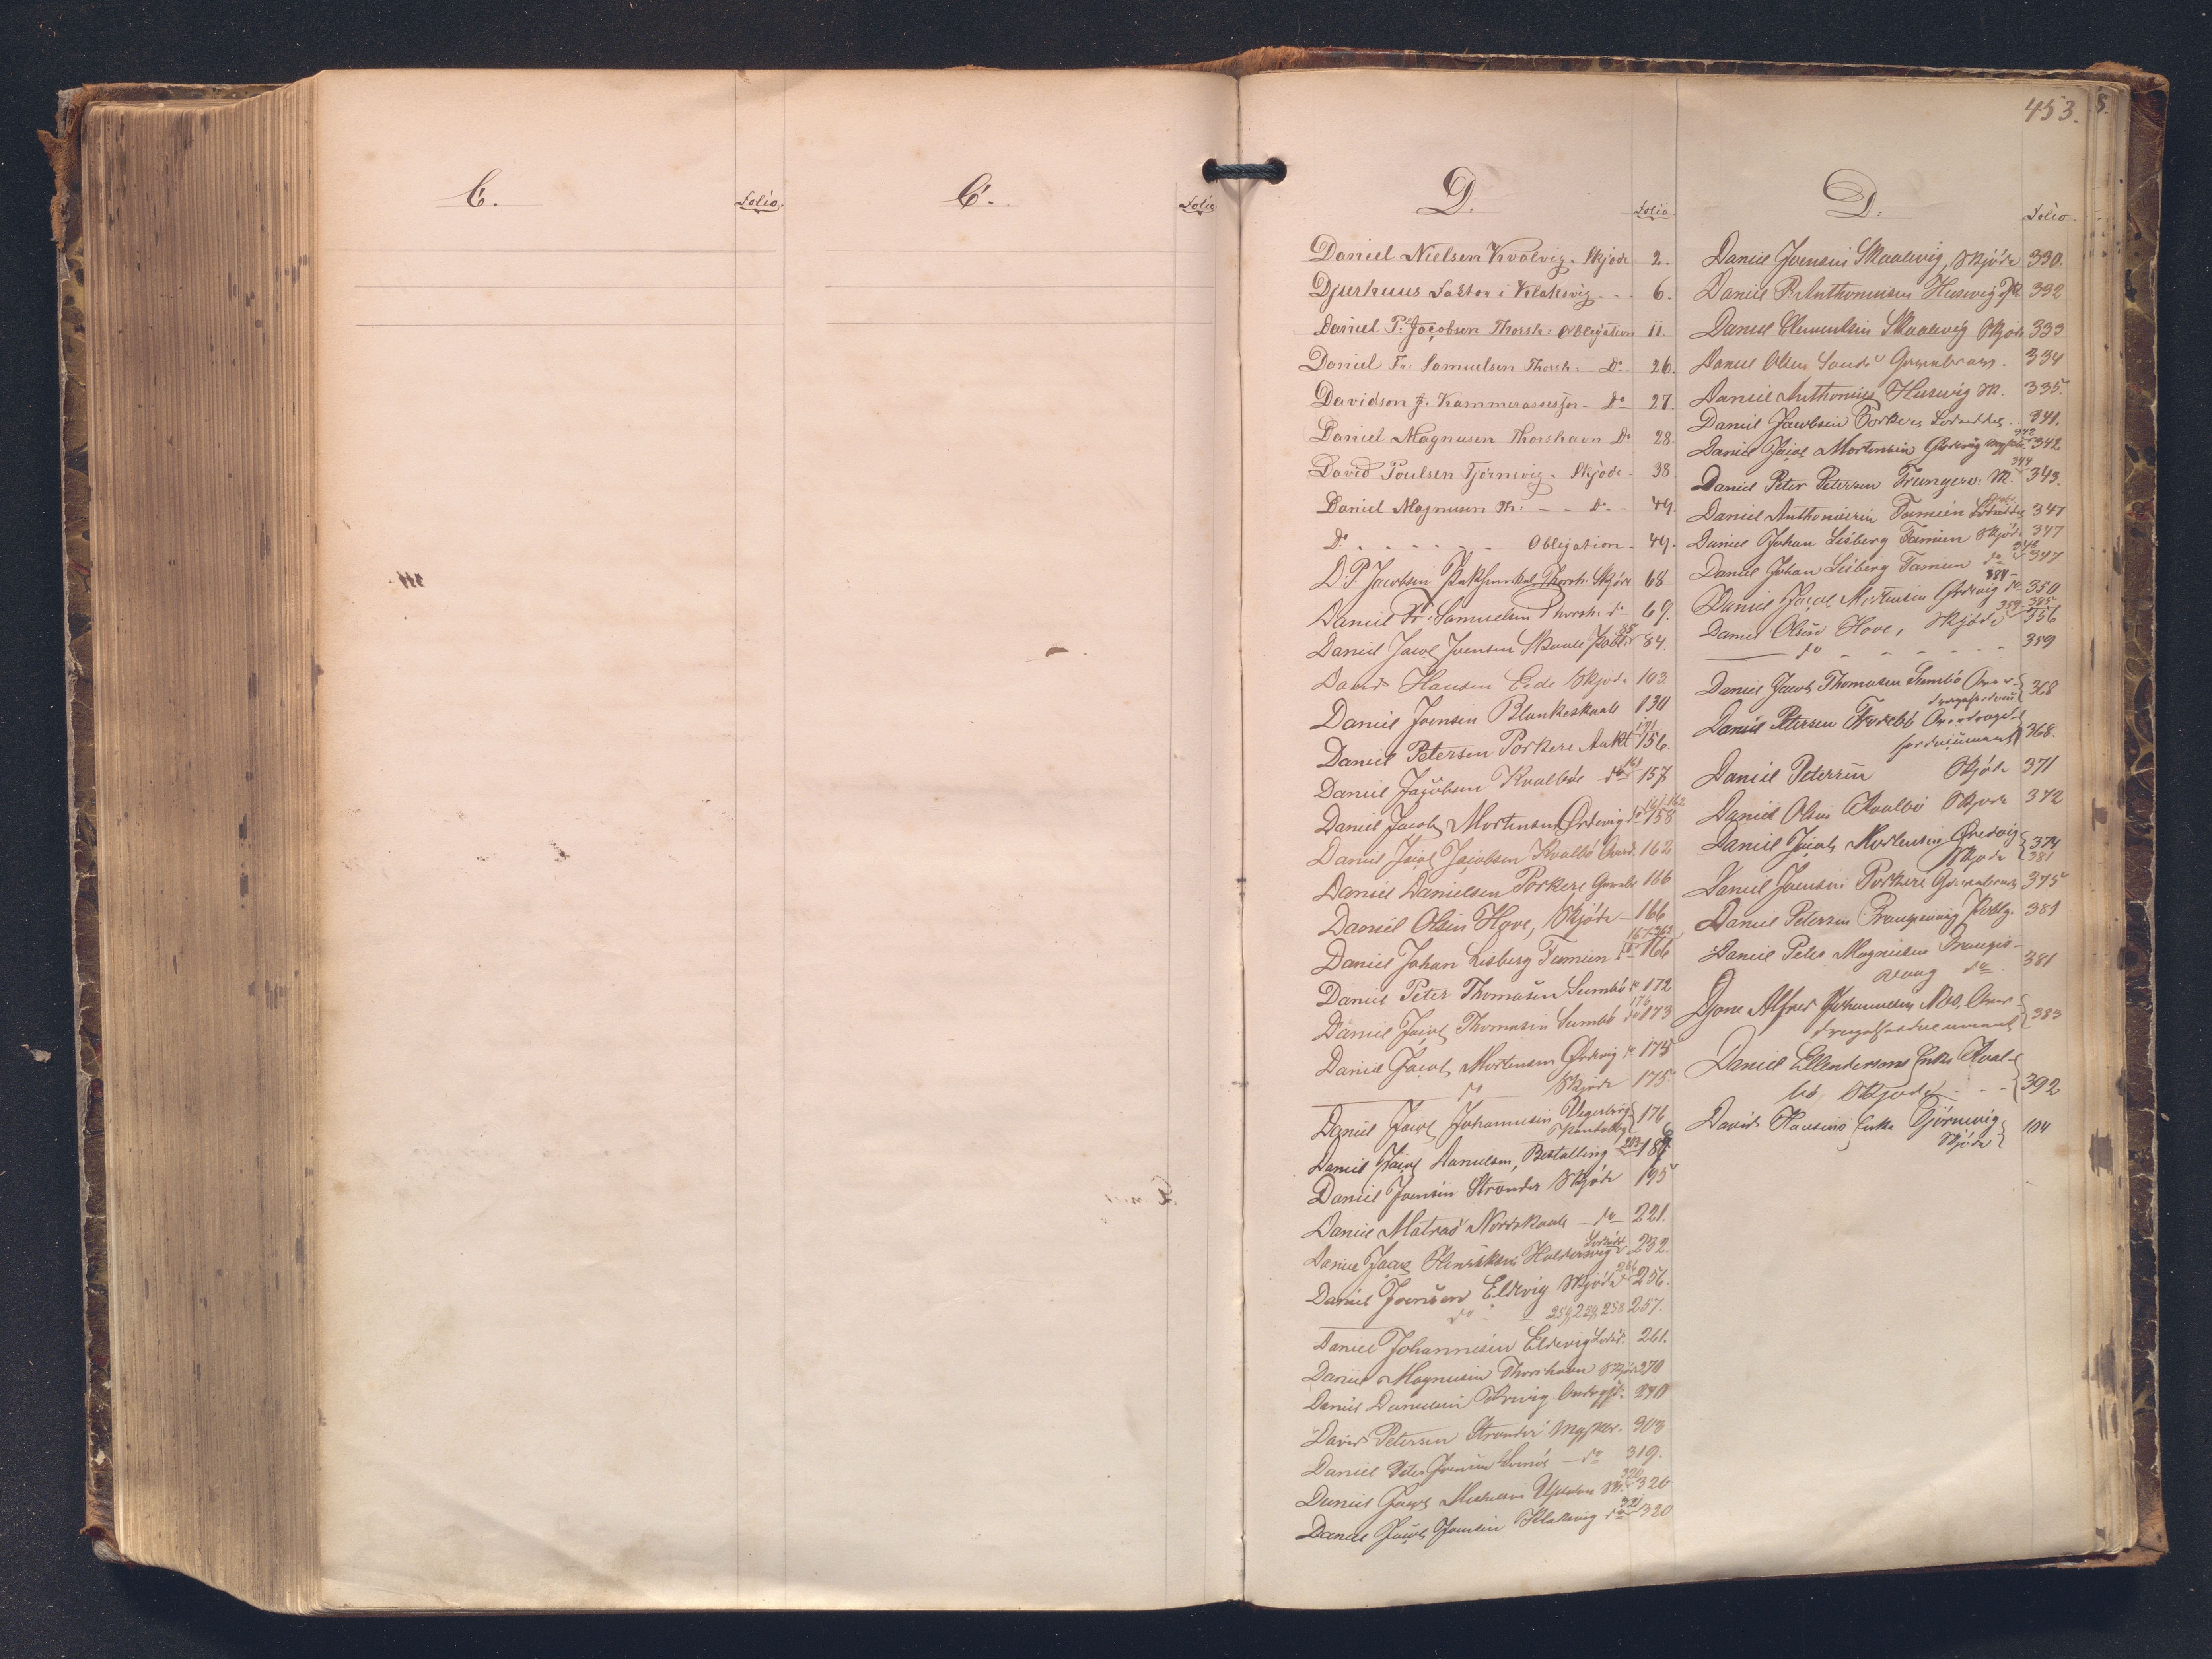 C.
Folio.
C.
Folio
453.
D.
Folio
Daniel Nielsen Kvalvig. Skjøde 2.
Djurhuus Faktor i Klaksvig . . 6.
Daniel P. Jacobsen Thorsh: Obligation 11.
Daniel Fr. Samuelsen Thorsh: - Do - 26.
Davidson J. Kammerassessor - Do - 27.
Daniel Magnusen Thorshavn Do 28
David Poulsen Tjørnevig - Skjøde - 38.
Daniel Magnusen Th: - - Do - 49.
Do . . . . . . Obligation - 49.
D. P. Jacobsen Thorsh. Skjøde 68
Daniel Fr. Samuelsen Thorsh: do - 69.
Daniel Jacob Joensen Skaale 85 84.
David Hansen Eide Skjøde 103.
Daniel Joensen Blankeskaale 130
Daniel Petersen Porkere Aukt 191 156.
Daniel Jacobsen Kvalbø do 161 157
Daniel Jacob Mortensen Ørdevig do 161-162 158
Daniel Jacob Jacobsen Kvalbø 162
Daniel Danielsen Porkere 166
Daniel Olsen Hove, Skjøde - 166
Daniel Johan Lisberg Famien do 167-363 166
Daniel Peter Thomasen Sumbø do 172
Daniel Jacob Thomasen Sumbø do 176 173
Daniel Jacob Mortensen Ørdevig do 175
do Skjøde 175.
Daniel Jacob Johannesen 176
Daniel Jacob Danielsen, Bestalling 203
Daniel Joensen Strander Skjøde 195
Daniel Matras Nordskaale - do - 221.
Daniel Jacob Henriksen Haldersvig 232.
Daniel Joensen Eldevig Skjøde 266 256.
do 259, 259, 258 257.
Daniel Johannesen Eldevig 261.
Daniel Magnusen Thorshavn Skjøde 270
Daniel Danielsen 290
David Petersen Strander 303
Daniel Peter Joensen - do 319.
Daniel Jacob 320 320
Daniel Jacob Joensen Klaksvig do 321 320
D.
Folio.
Daniel Joensen Skaalevig, Skjøde 330.
Daniel P. Anthoniusen Husevig 332
Daniel Clementsen Skaalevig Skjøde 333
Daniel Olsen Sand 334
Daniel Anthonius Husevig M. 335.
Daniel Jacobsen Porkere 341.
Daniel Jacob Mortensen Ørdevig 342 342
Daniel Peter Petersen Frungerv: M. 344 343.
Daniel Anthoniusen Famien 347
Daniel Johan Lisberg Famien Skjøde 347
Daniel Johan Lisberg Famien do 348 347
Daniel Jacob Mortensen Ørdevig do 384 - 385 350
Daniel Olsen Hove, Skjøde 359 356
do - - - - - 359
Daniel Jacob Thomasen Sumbø 368
Daniel Petersen 368.
Daniel Petersen Skjøde 371
Daniel Olsen Kvalbø Skjøde 372
Daniel Jacob Mortensen Øredvig 374
Skjøde 381
Daniel Joensen Porkere 375
Daniel Petersen 381
Daniel Peter Magnusen
vaag do 381
Djone Alfred Johannesen Næs, 383
Daniel Ellendersens Enke Kval-
bø Skjøde - - 392
David Hansens Enke Tjørnevig
Skjøde 104